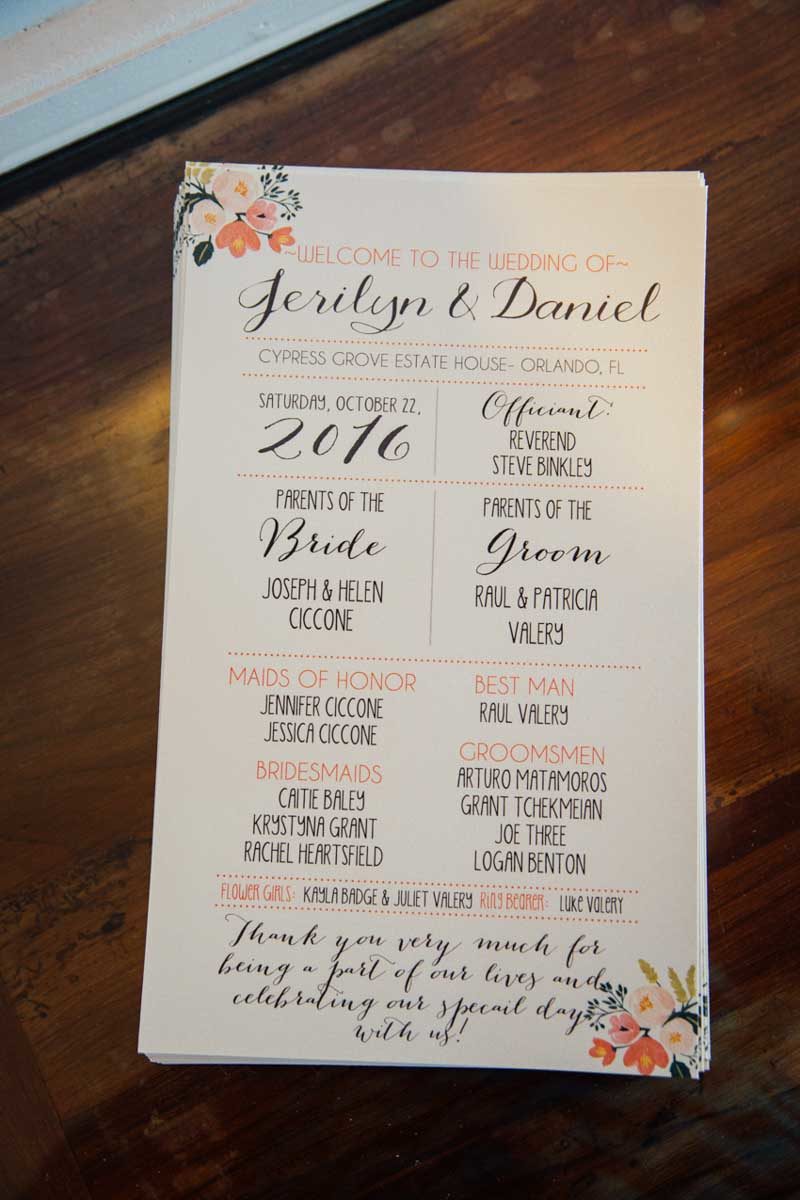 ~WELCOME TO THE WEDDING OF~
Jerilyn & Daniel
CYPRESS GROVE ESTATE HOUSE- ORLANDO, FL
SATURDAY, OCTOBER 22,
2016
Officiant:
REVEREND
STEVE BINKLEY
PARENTS OF THE
Bride
JOSEPH & HELEN
CICCONE
PARENTS OF THE
Groom
RAUL & PATRICIA
VALERY
MAIDS OF HONOR
JENNIFER CICCONE
JESSICA CICCONE
BRIDESMAIDS
CAITIE BALEY
KRYSTYNA GRANT
RACHEL HEARTSFIELD
BEST MAN
RAUL VALERY
GROOMSMEN
ARTURO MATAMOROS
GRANT TCHEKMEIAN
JOE THREE
LOGAN BENTON
FLOWER GIRLS: KAYLA BADGE & JULIET VALERY RING BEARER: LUKE VALERY
Thank you very much for
being a part of our lives and
celebrating our specail day
with us!